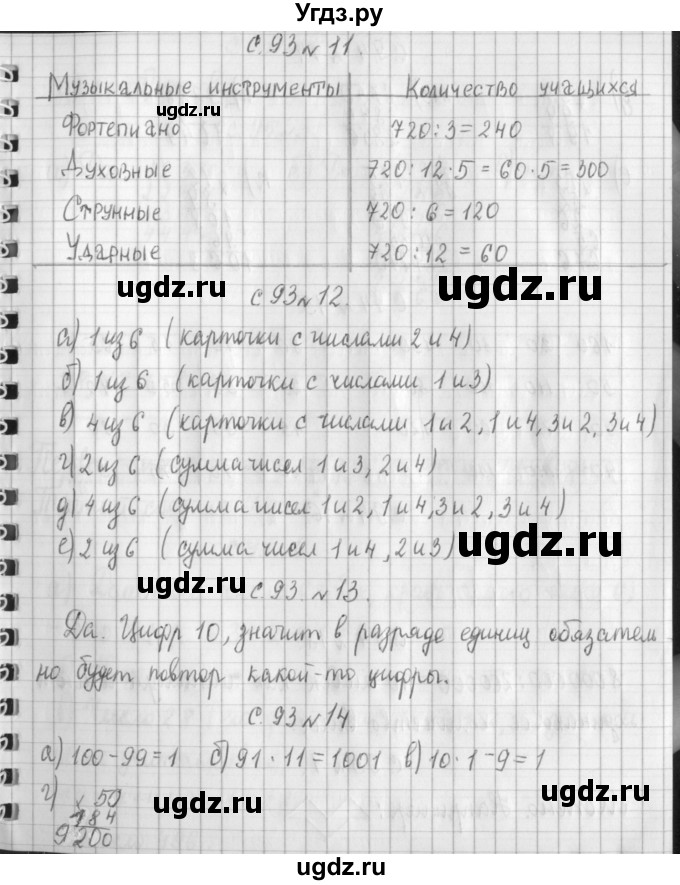 Угдз.ру
с. 93 № 11.
Музыкальные инструменты Количество учащихся
ugdz.ru
Фортепиано 720:3=240
Духовные 720:12·5=60·5=300
Струнные 720:6=120
Ударные 720:12=60
ugdz.ru ugdz.ru
с. 93 № 12.
а) 1 из 6 (карточки с числами 2 и 4)
б) 1 из 6 (карточки с числами 1 и 3)
в) 4 из 6 (карточки с числами 1 и 2, 1 и 4, 3 и 2, 3 и 4)
г) 2 из 6 (сумма чисел 1 и 3, 2 и 4)
д) 4 из 6 (сумма чисел 1 и 2, 1 и 4, 3 и 2, 3 и 4)
е) 2 из 6 (сумма чисел 1 и 4, 2 и 3)
ugdz.ru
ugdz.ru
с. 93. № 13.
Да. Цифр 10, значит в разряде единиц обязатель
но будет повтор какой-то цифры.
с. 93 № 14
а) 100-99=1 б) 91·11=1001 в) 10·1-9=1
ugdz.ru ugdz.ru
г) × 50
184
9200
ugdz.ru